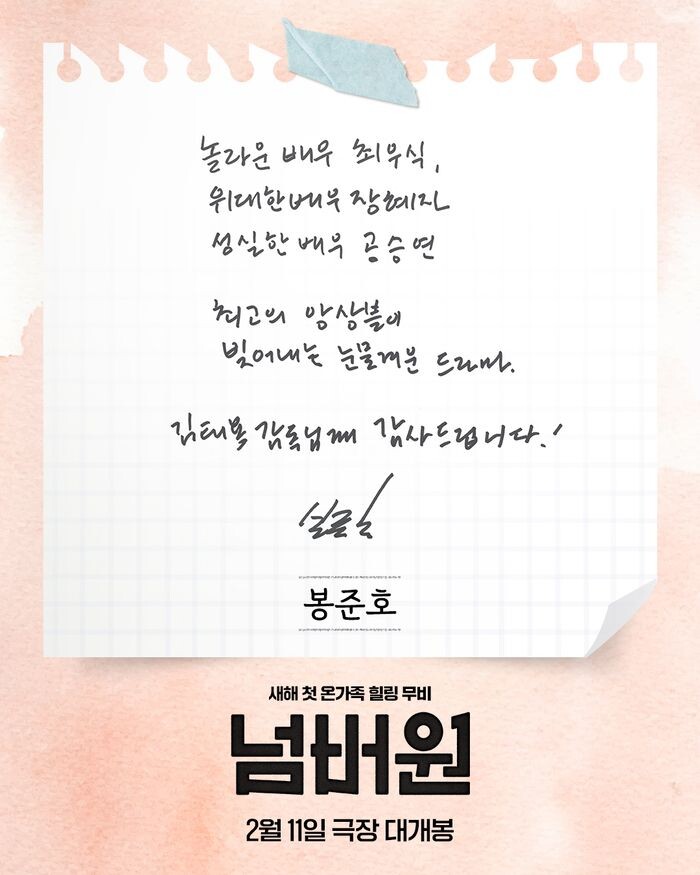 놀라운 배우 최우식,
위대한 배우 장혜진
성실한 배우 공승연
최고의 앙상블이
빚어내는 눈물겨운 드라마.
김태용 감독님께 감사드립니다.!
봉준호
새해 첫 온가족 힐링 무비
넘버원
2월 11일 극장 대개봉